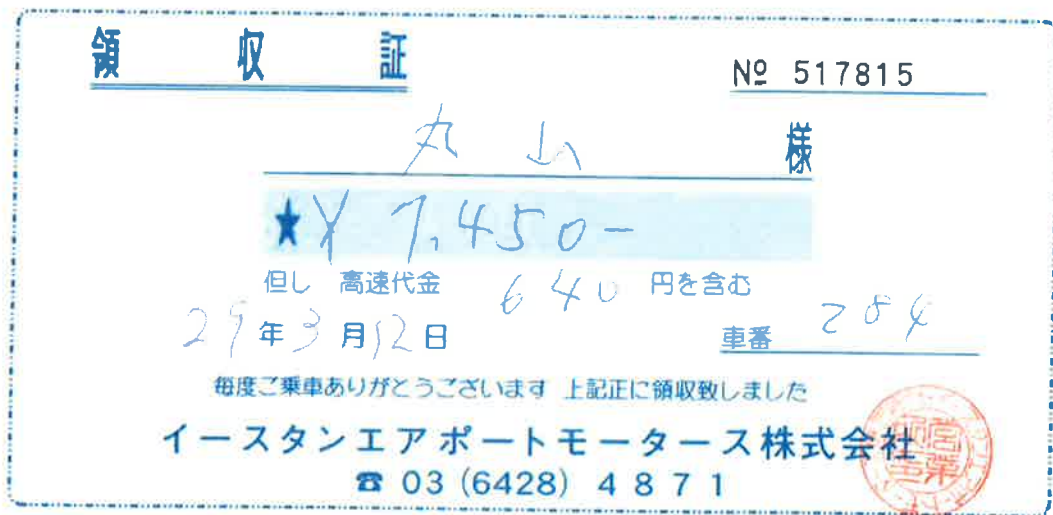 領収証
№ 517815
丸山 様
★¥7,450-
但し 高速代金 640 円を含む
29年3月12日
車番 284
毎度ご乗車ありがとうございます 上記正に領収致しました
イースタンエアポートモータース株式会社
☎ 03 (6428) 4871